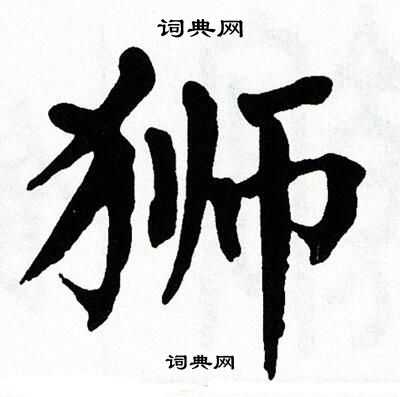 词典网
狮
词典网